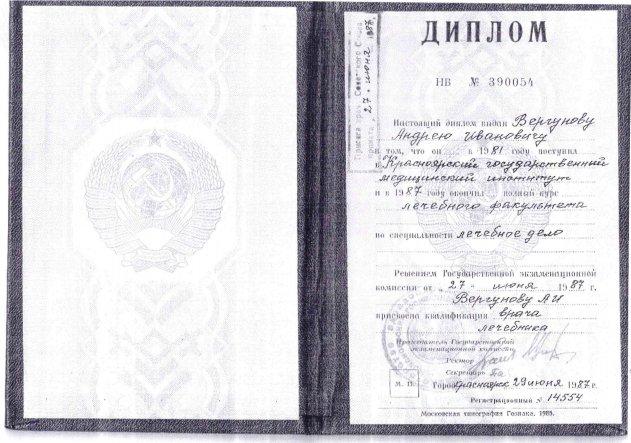 ДИПЛОМ
НВ № 390054
Настоящий диплом выдан Вергунову
Андрею Ивановичу
в том, что он в 1981 году поступил
в Красноярский государственный
медицинский институт
и в 1987 году окончил полный курс
лечебного факультета
по специальности лечебное дело
Решением Государственной экзаменационной
комиссии от „27" июня 1987 г.
Вергунову АИ
присвоена квалификация врача
лечебника
Председатель Государственной
экзаменационной комиссии
Ректор
Секретарь
М. П. Город Красноярск 29 июня 1987 г.
Регистрационный № 14554
Московская типография Гознака. 1985.
Присяга врача Советского Союза
принята „27" июня 1987.